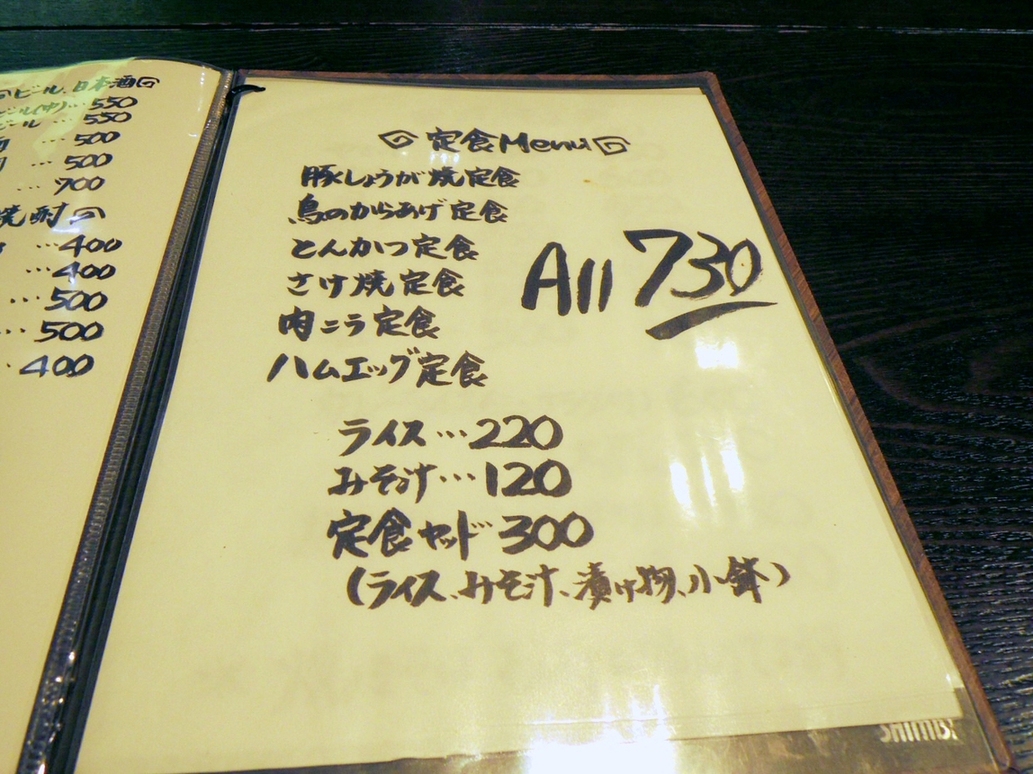 ビール、日本酒
ビール(中)…550
ビール…550
…500
…500
…700
焼酎
…400
…400
…500
…500
…400
定食Menu
豚しょうが焼定食
鳥のからあげ定食
とんかつ定食
さけ焼定食
肉ニラ定食
ハムエッグ定食
All 730
ライス…220
みそ汁…120
定食セット 300
(ライス、みそ汁、漬け物、小鉢)